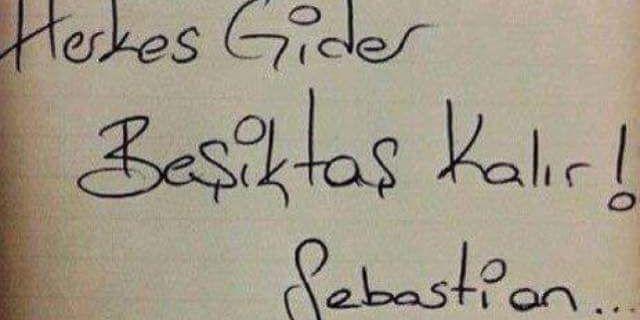 Herkes Gider
Beşiktaş Kalır!
Sebastian...